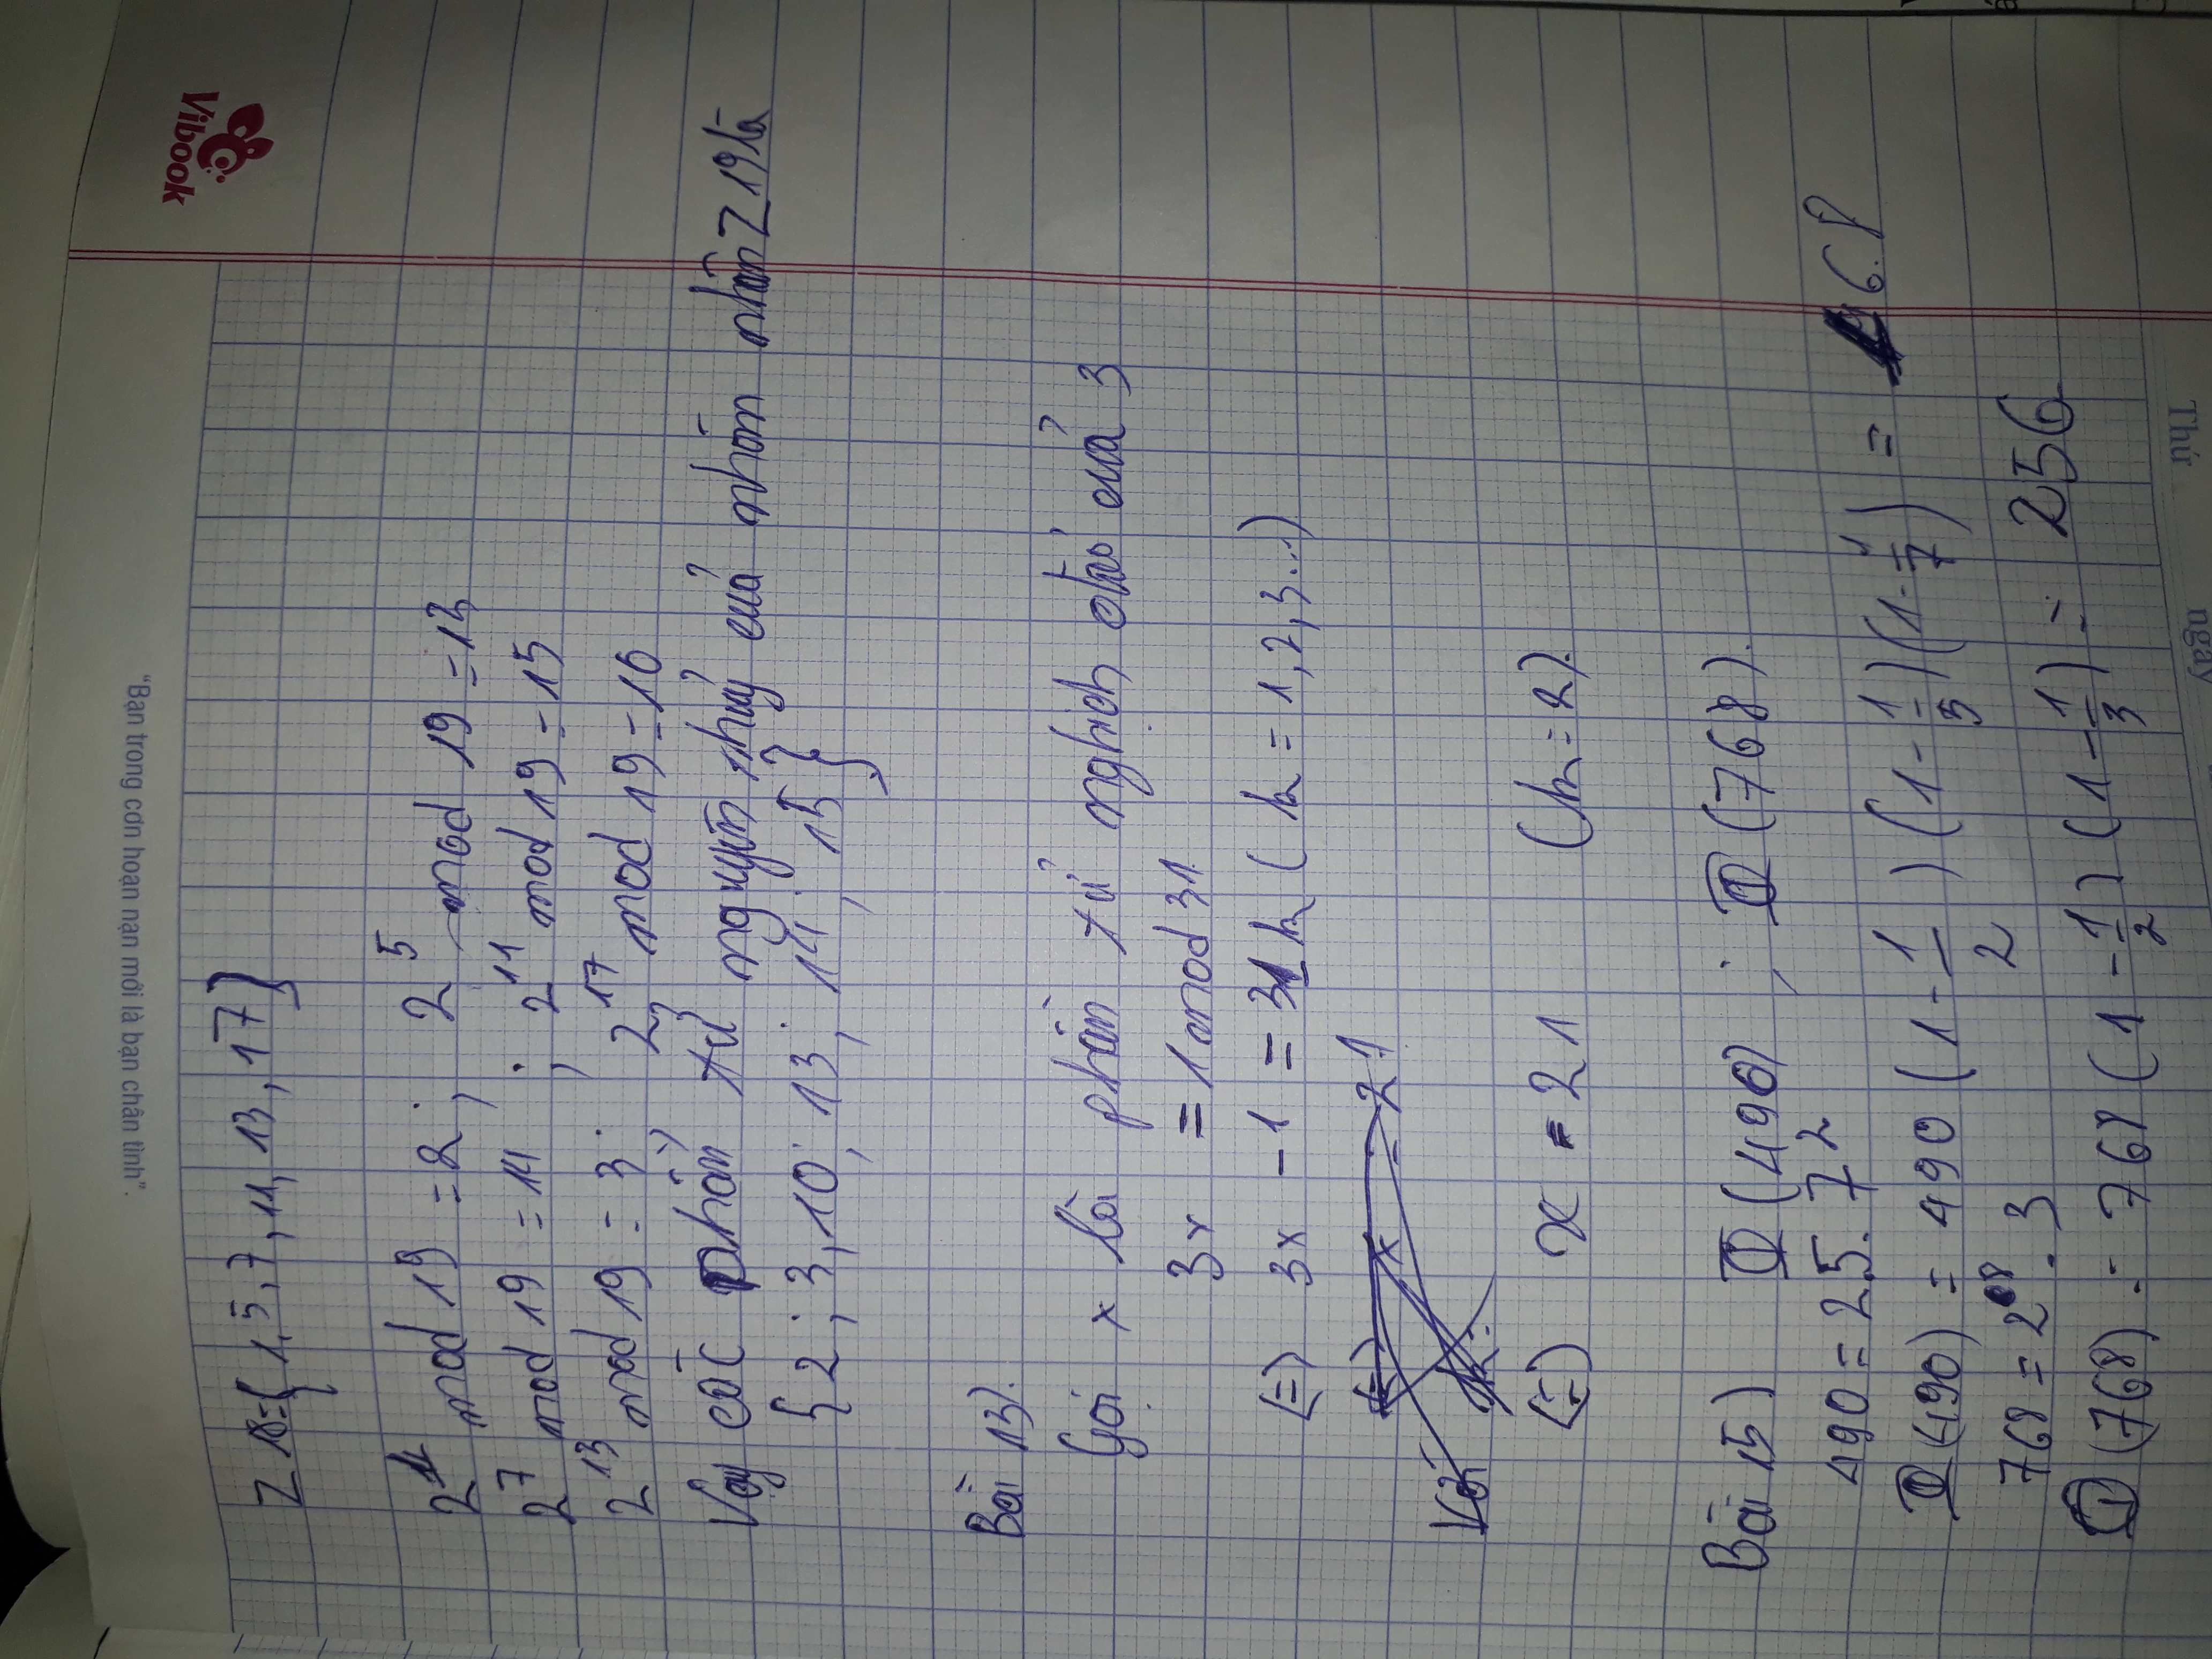 "Bạn trong cơn hoạn nạn mới là bạn chân tình".
Vibook
Z18={1,5,7,11,13,17}
2^1 mod 19 = 2; 2^5 mod 19 = 13
2^7 mod 19 = 14; 2^11 mod 19 = 15
2^13 mod 19 = 3; 2^17 mod 19 = 10
Vậy các phần tử nguyên thuỷ của nhóm nhân Z19 là
{2; 3, 10; 13; 14; 15}
Bài 13).
Gọi x là phần tử nghịch đảo của 3
3x = 1 mod 31.
(=) 3x - 1 = 31k (k = 1, 2, 3...)
(=) x = 21
Với k =
(=) x = 21 (k = 2).
Bài 15) Φ(490); Φ(768).
490 = 2.5.7^2
Φ(490) = 490 (1 - 1/2) (1 - 1/5) (1 - 1/7) = 168
768 = 2^8 . 3
Φ(768) = 768 (1 - 1/2) (1 - 1/3) = 256
Thứ
ngày